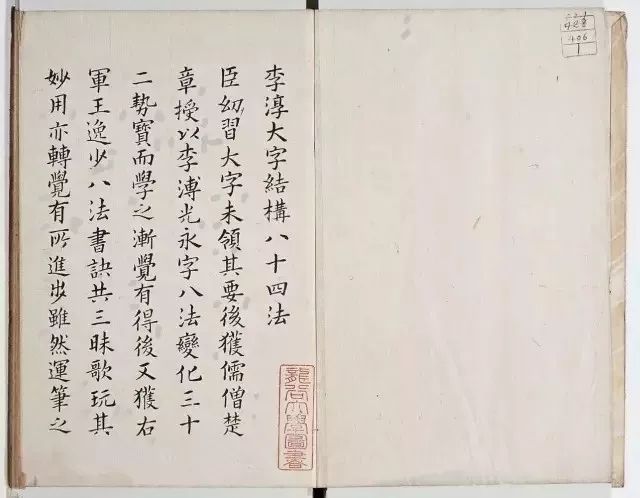 406
1
李淳大字結構八十四法
臣幼習大字未領其要後獲儒僧楚
章授以李溥光永字八法變化三十
二勢寶而學之漸覺有得後又獲右
軍王逸少八法書訣共三昧歌玩其
妙用亦轉覺有所進步雖然運筆之
龍谷大學圖書